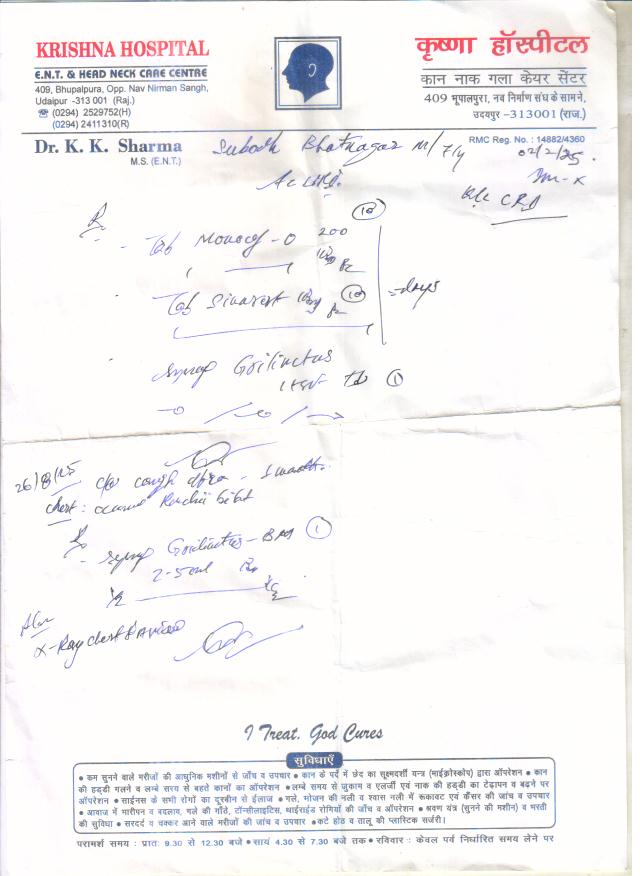 KRISHNA HOSPITAL
E.N.T. & HEAD NECK CARE CENTRE
409, Bhupalpura, Opp. Nav Nirman Sangh,
Udaipur -313 001 (Raj.)
☎ (0294) 2529752(H)
(0294) 2411310(R)
कृष्णा हॉस्पीटल
कान नाक गला केयर सेंटर
409 भूपालपुरा, नव निर्माण संघ के सामने,
उदयपुर -313001 (राज.)
Dr. K. K. Sharma
M.S. (E.N.T.)
RMC Reg. No. : 14882/4360
Subodh Bhatnagar M/
02/2/25.
Tab Monocef-O 200
10
Tab Sinarest
10
days
syrup Grilinctus
1
26/8/25 c/o cough
chest:
syrup Grilinctus-BM 1
2-5ml
X-Ray chest PA view
I Treat, God Cures
सुविधाएँ
● कम सुनने वाले मरीजों की आधुनिक मशीनों से जाँच व उपचार ● कान के पर्दे में छेद का सूक्ष्मदर्शी यन्त्र (माईक्रोस्कोप) द्वारा ऑपरेशन ● कान
की हड्डी गलने व लम्बे समय से बहते कानों का ऑपरेशन ● लम्बे समय से जुकाम व एलर्जी एवं नाक की हड्डी का टेढ़ापन व बढ़ने पर
ऑपरेशन ● साईनस के सभी रोगों का दूरबीन से ईलाज ● गले, भोजन की नली व श्वास नली में रूकावट एवं कैंसर की जांच व उपचार
● आवाज में भारीपन व बदलाव, गले की गाँठे, टॉन्सीलाइटिस, थाईराईड रोगियों की जाँच व ऑपरेशन ● श्रवण यंत्र (सुनने की मशीन) व भरती
की सुविधा ● सरदर्द व चक्कर आने वाले मरीजों की जांच व उपचार ● कटे होठ व तालू की प्लास्टिक सर्जरी।
परामर्श समय : प्रातः 9.30 से 12.30 बजे ● सायं 4.30 से 7.30 बजे तक ● रविवार : केवल पूर्व निर्धारित समय लेने पर